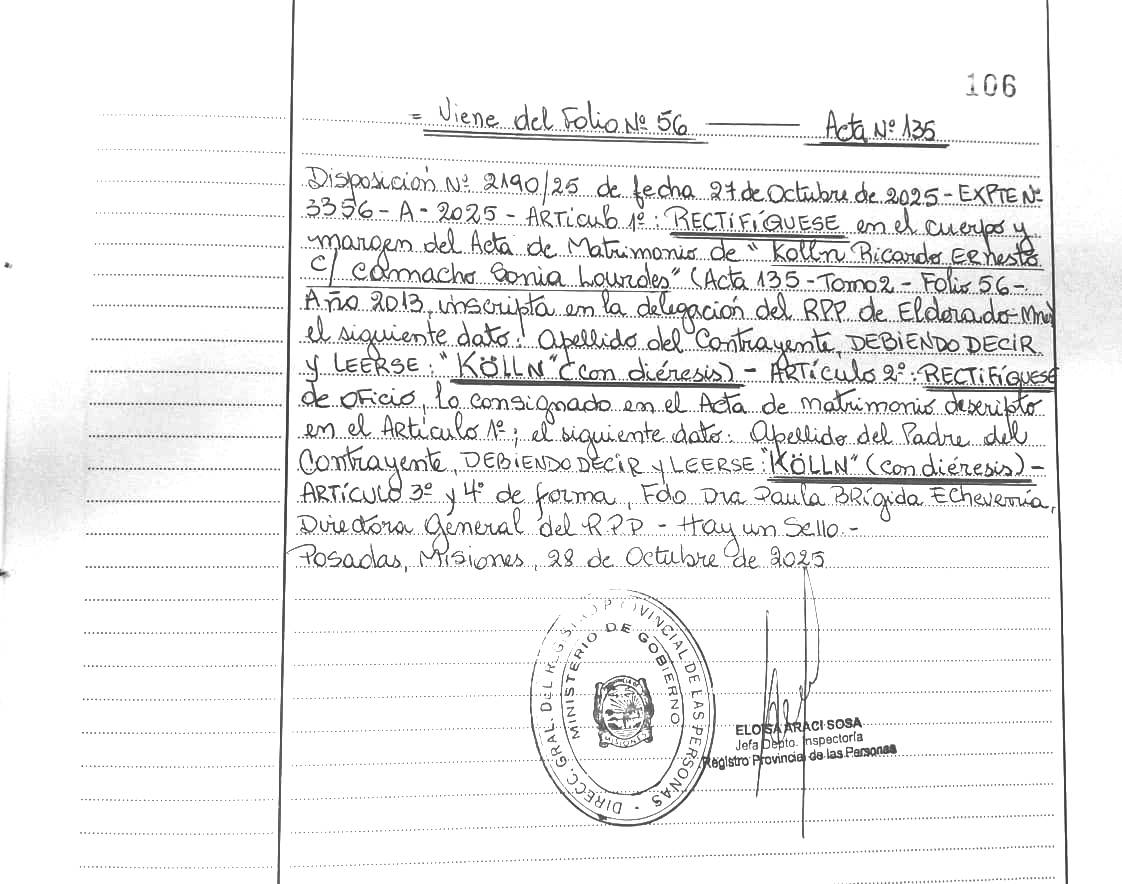 106
= Viene del Folio Nº 56 ——— Acta Nº 135
Disposición Nº 2190/25 de fecha 27 de Octubre de 2025 - EXPTE Nº
3356 - A - 2025 - ARTICULO 1º: RECTIFÍQUESE en el cuerpo y
margen del Acta de Matrimonio de "Kolln Ricardo Ernesto
c/ Camacho Sonia Lourdes" (Acta 135 - Tomo 2 - Folio 56 -
Año 2013, inscripta en la delegación del RPP de Eldorado - Mnes)
el siguiente dato: Apellido del Contrayente, DEBIENDO DECIR
y LEERSE: "KÖLLN" (con diéresis) - ARTÍCULO 2º: RECTIFÍQUESE
de oficio, lo consignado en el Acta de matrimonio descripto
en el Artículo 1º; el siguiente dato: Apellido del Padre del
Contrayente, DEBIENDO DECIR y LEERSE: "KÖLLN" (con diéresis) -
ARTÍCULO 3º y 4º de forma, Fdo Dra Paula BRígida Echeverría,
Directora General del RPP - Hay un Sello. -
Posadas, Misiones, 28 de Octubre de 2025
DIRECC. GRAL. DEL REGISTRO PROVINCIAL DE LAS PERSONAS -
MINISTERIO DE GOBIERNO
MISIONES
ELOISA ARACI SOSA
Jefa Depto. Inspectoría
Registro Provincial de las Personas